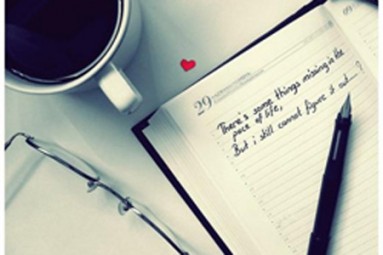 29
There's some things missing in the
pace of life,
But i still cannot figure it out....?